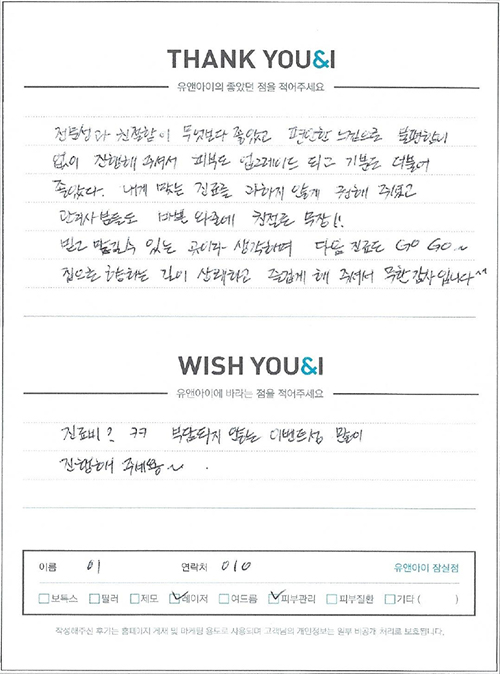 THANK YOU&I
유앤아이의 좋았던 점을 적어주세요
전문성과 친절함이 무엇보다 좋았고 편안한 느낌으로 불편함이
없이 진행해 주셔서 피부도 업그레이드 되고 기분도 더불어
좋았다. 내게 맞는 진료를 과하지 않게 권해 주셨고
관리사분들도 바쁜 와중에 친절로 무장!!
믿고 맡길수 있는 곳이라 생각하며 다음 진료도 GO GO~
집으로 향하는 길이 상쾌하고 즐겁게 해 주셔서 무한 감사입니다^^
WISH YOU&I
유앤아이에 바라는 점을 적어주세요
진료비? ㅋㅋ 부담되지 않는 이벤트성 많이
진행해 주세용~
이름 이 연락처 010 유앤아이 잠실점
보톡스 필러 제모 레이저 여드름 피부관리 피부질환 기타 ( )
작성해주신 후기는 홈페이지 게재 및 마케팅 용도로 사용되며 고객님의 개인정보는 일부 비공개 처리로 보호됩니다.